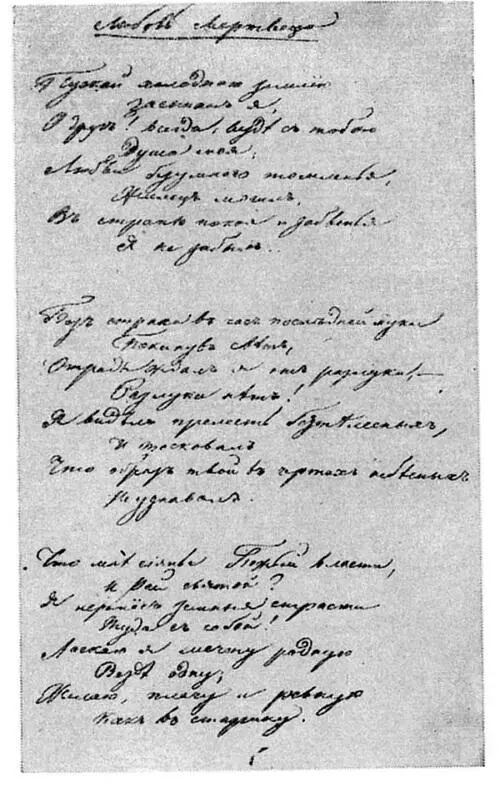 Любовь Мертвеца
Пускай холодною землею
Засыпанъ я,
О другъ! всегда, вездѣ съ тобою
Душа моя.
Любви безумнаго томленья,
Жилецъ могилъ,
Въ странѣ покоя и забвенья
Я не забылъ.
Безъ страха въ часъ послѣдней муки
Покинувъ свѣтъ,
Отрады ждалъ я отъ разлуки —
Разлуки нѣтъ!
Я видѣлъ прелесть безтѣлесныхъ,
И тосковалъ
Что образъ твой въ чертахъ небесныхъ
Не узнавалъ.
Что мнѣ сіянье Божьей власти,
И Рай святой?
Я перенесъ земныя страсти
Туда съ собой!
Ласкаю я мечту родную
Вездѣ одну;
Желаю, плачу и ревную
Какъ въ старину.